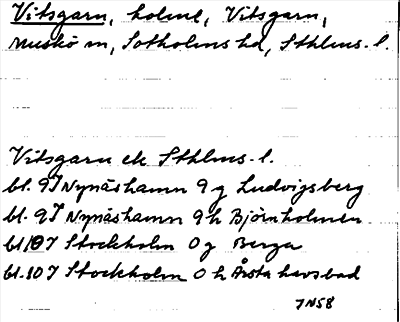 Vitsgarn, holme, Vitsgarn,
Muskö sn, Sotholms hd, Sthlms. l.
Vitsgarn ek Sthlms. l.
bl. 9I Nynäshamn 9g Ludvigsberg
bl. 9I Nynäshamn 9h Björnholmen
bl 10I Stockholm 0g Berga
bl. 10I Stockholm 0h Årsta havsbad
JN58